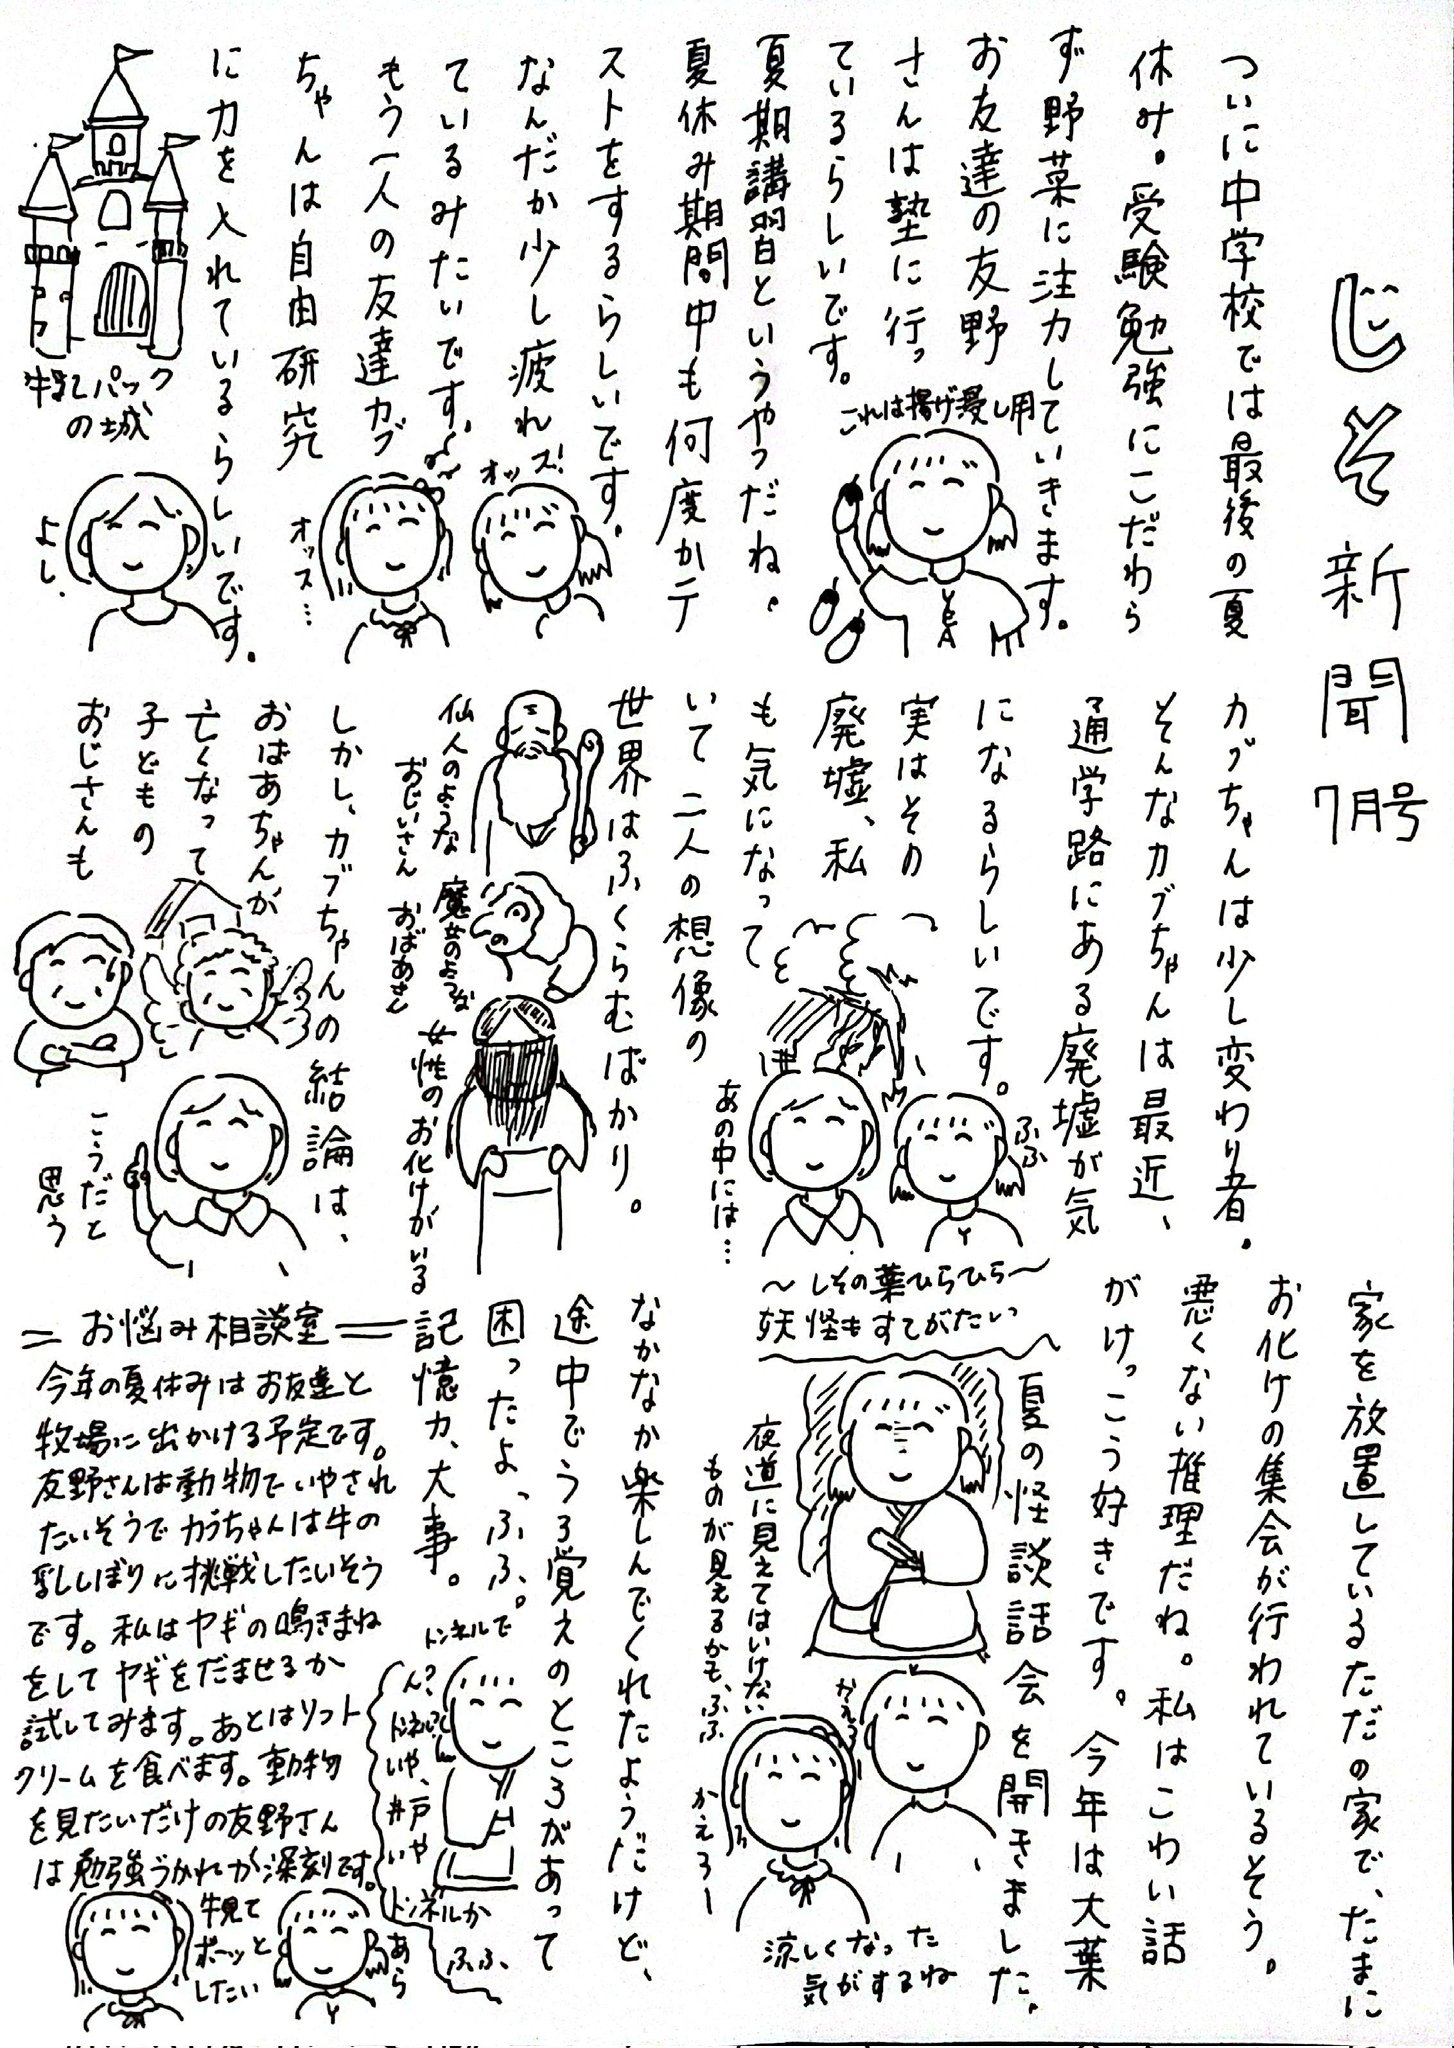 じそ新聞 7月号
ついに中学校では最後の夏
休み。受験勉強にこだわら
ず野菜に注力していきます。
お友達の友野
さんは塾に行っ
ているらしいです。
夏期講習というやつだね。
夏休み期間中も何度かテ
ストをするらしいです。
なんだか少し疲れ
ているみたいです。
もう一人の友達カブ
ちゃんは自由研究
に力を入れているらしいです。
これは揚げ浸し用
オッス!
オッス…
牛乳パック
の城
よし.
カブちゃんは少し変わり者。
そんなカブちゃんは最近、
通学路にある廃墟が気
になるらしいです。
実はその
廃墟、私
も気になって
いて二人の想像の
世界はふくらむばかり。
ふふ
あの中には…
仙人のような
おじいさん
魔女のような
おばあさん
女性のお化けがいる
しかし、カブちゃんの結論は、
おばあちゃんが
亡くなって
子どもの
おじさんも
こうだと
思う
家を放置しているただの家で、たまに
お化けの集会が行われているそう。
悪くない推理だね。私はこわい話
がけっこう好きです。今年は大葉
夏の怪談話会を開きました。
〜しその葉ひらひら〜
妖怪もすてがたい
夜道に見えてはいけない
ものが見えるかも、ふふ
かえろ
かえろー
涼しくなった
気がするね
なかなか楽しんでくれたようだけど、
途中でうろ覚えのところがあって
困ったよ、ふふ。
記憶力、大事。
トンネルで
ん?
いや、井戸や
いや
トンネルか
あら
ふふ、
=お悩み相談室=
今年の夏休みはお友達と
牧場に出かける予定です。
友野さんは動物でいやされ
たいそうでカブちゃんは牛の
乳しぼりに挑戦したいそう
です。私はヤギの鳴きまね
をしてヤギをだませるか
試してみます。あとはソフト
クリームを食べます。動物
を見たいだけの友野さん
は勉強づかれが深刻です。
牛見て
ボーッと
したい